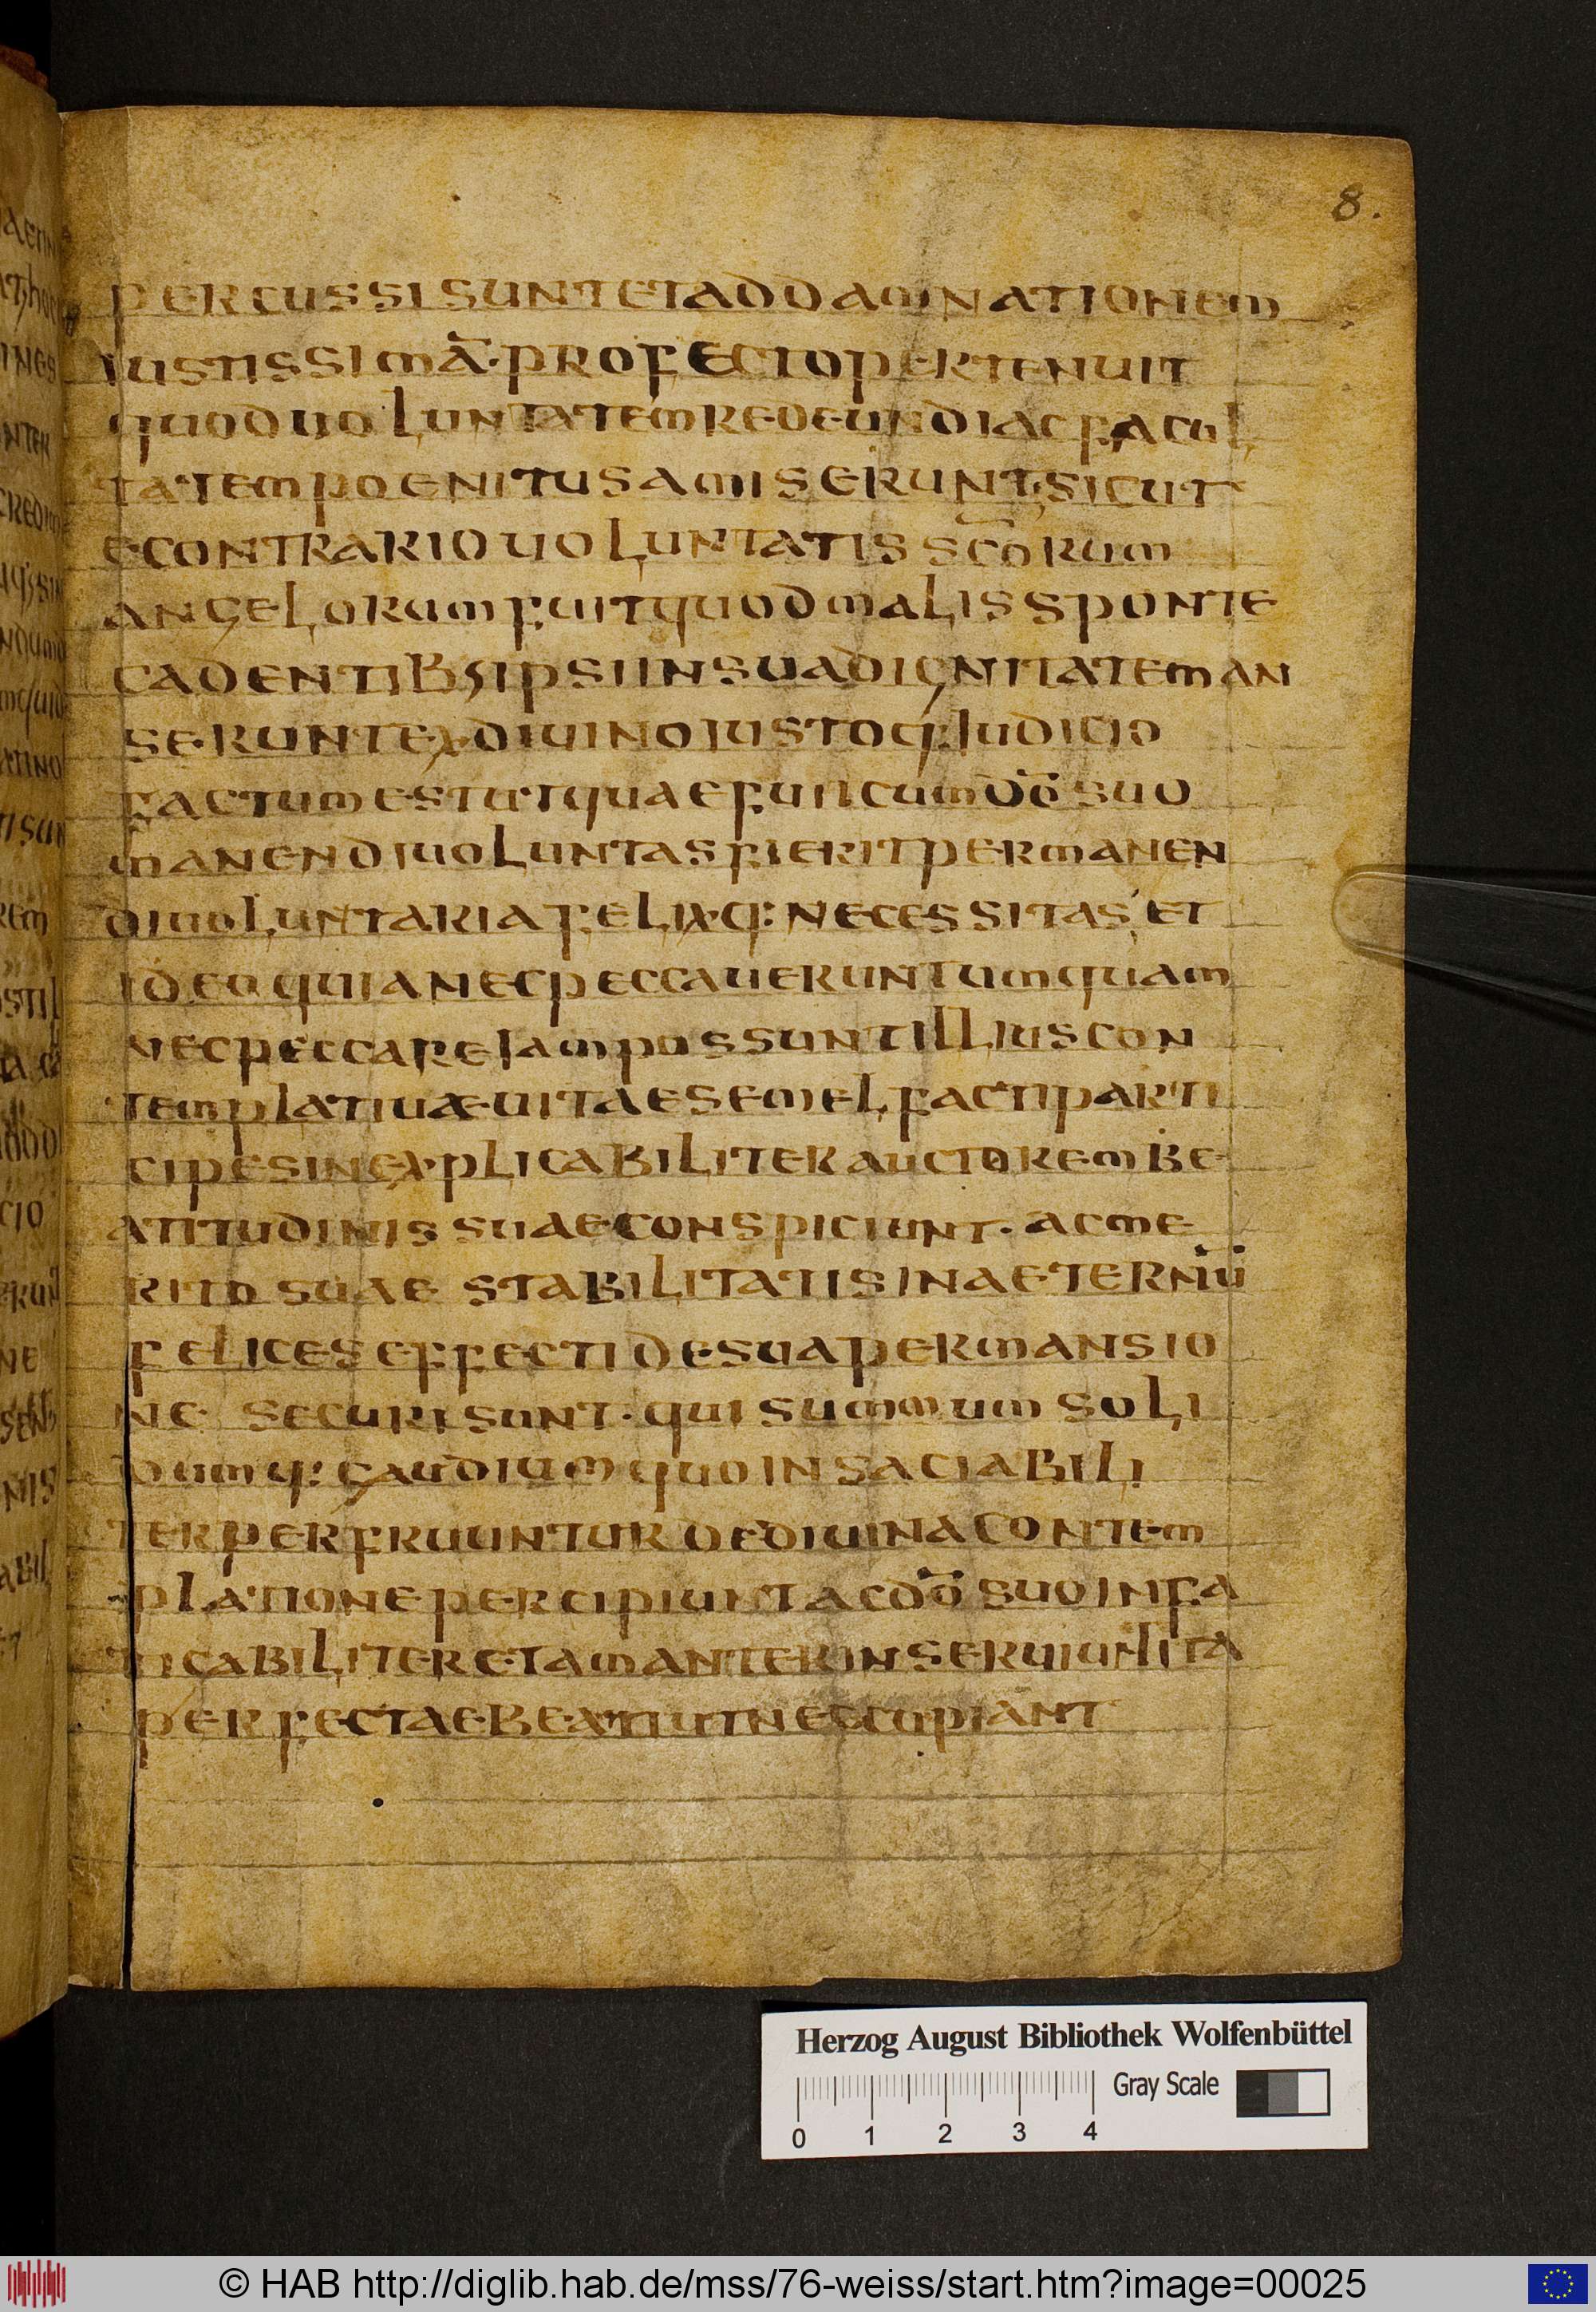 8.
PERCUSSISUNTETADDAMNATIONEM
IUSTISSIMĀ·PROFECTOPERTENUIT
QUODUOLUNTATEMREDEUNDIACFACUL
TATEMPOENITUSAMISERUNT;SICUT
ECONTRARIOUOLUNTATISSC̄ORUM
ANGELORUMFUITQUODMALISSPONTE
CADENTIB;IPSIINSUADIGNITATEMAN
SERUNTEXDIUINOIUSTOQ:IUDICIO
FACTUMESTUTQUAEFUITCUMD̄ŌSUO
MANENDIUOLUNTASFIERITPERMANEN
DIUOLUNTARIAFELIXQ:NECESSITAS,ET
IDEOQUIANECPECCAUERUNTUMQUAM
NECPECCAREIAMPOSSUNTILLIUSCON
TEMPLATIUÆUITAESEMELFACTIPARTI
CIPESINEXPLICABILITERAUCTOREMBE
ATITUDINISSUAECONSPICIUNT·ACME
RITOSUAESTABILITATISINAETERNŪ
FELICESEFFECTIDESUAPERMANSIO
NESECURISUNT·QUISUMMUMSOLI
DUMQ:GAUDIUMQUOINSACIABILI
TERPERFRUUNTURDEDIUINACONTEM
PLATIONEPERCIPIUNTACD̄ŌSUOINFA
TICABILITERETAMANTERINSERUIUNTITA
PERFECTAEBEATIUTNECCUPIANT
Herzog August Bibliothek Wolfenbüttel
Gray Scale
0 1 2 3 4
© HAB http://diglib.hab.de/mss/76-weiss/start.htm?image=00025